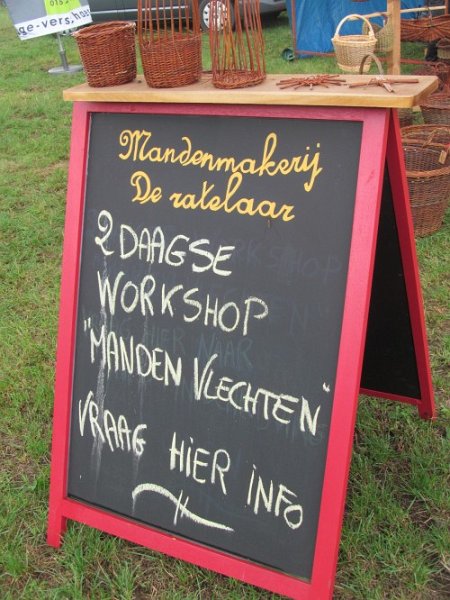 Mandenmakerij
De ratelaar
2 DAAGSE
WORKSHOP
"MANDEN VLECHTEN"
VRAAG HIER INFO